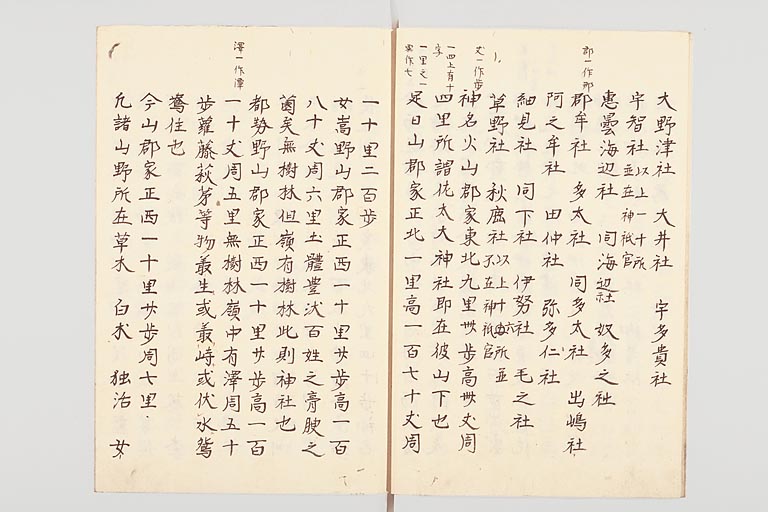 大野津社 大井社 宇多貴社
宇智社以上一十所並在神祇官
惠曇海辺社 同海辺社 奴多之社
郡牟社 多太社 同多太社 出嶋社
郡一作那
阿之牟社 田仲社 弥多仁社
細見社 同下社 伊努社 毛之社
草野社 秋鹿社以上十六所並不在神祇官
神名火山郡家東北九里卌步高卌丈周
丈一作步
四里所謂佐太大神社即在彼山下也
一四上有十字
足日山郡家正北一里高一百七十丈周
一里之一異作七
一十里二百步
女嵩野山郡家正西一十里廿步高一百
八十丈周六里土體豊沃百姓之膏腴之
薗矣無樹林但嶺有樹林此則神社也
都勢野山郡家正西一十里廿步高一百
一十丈周五里無樹林嶺中有澤周五十
澤一作潭
步蘿藤荻茅等物叢生或叢峙或伏水鴛
鴦住也
今山郡家正西一十里廿步周七里
凡諸山野所在草木 白朮 独活 女